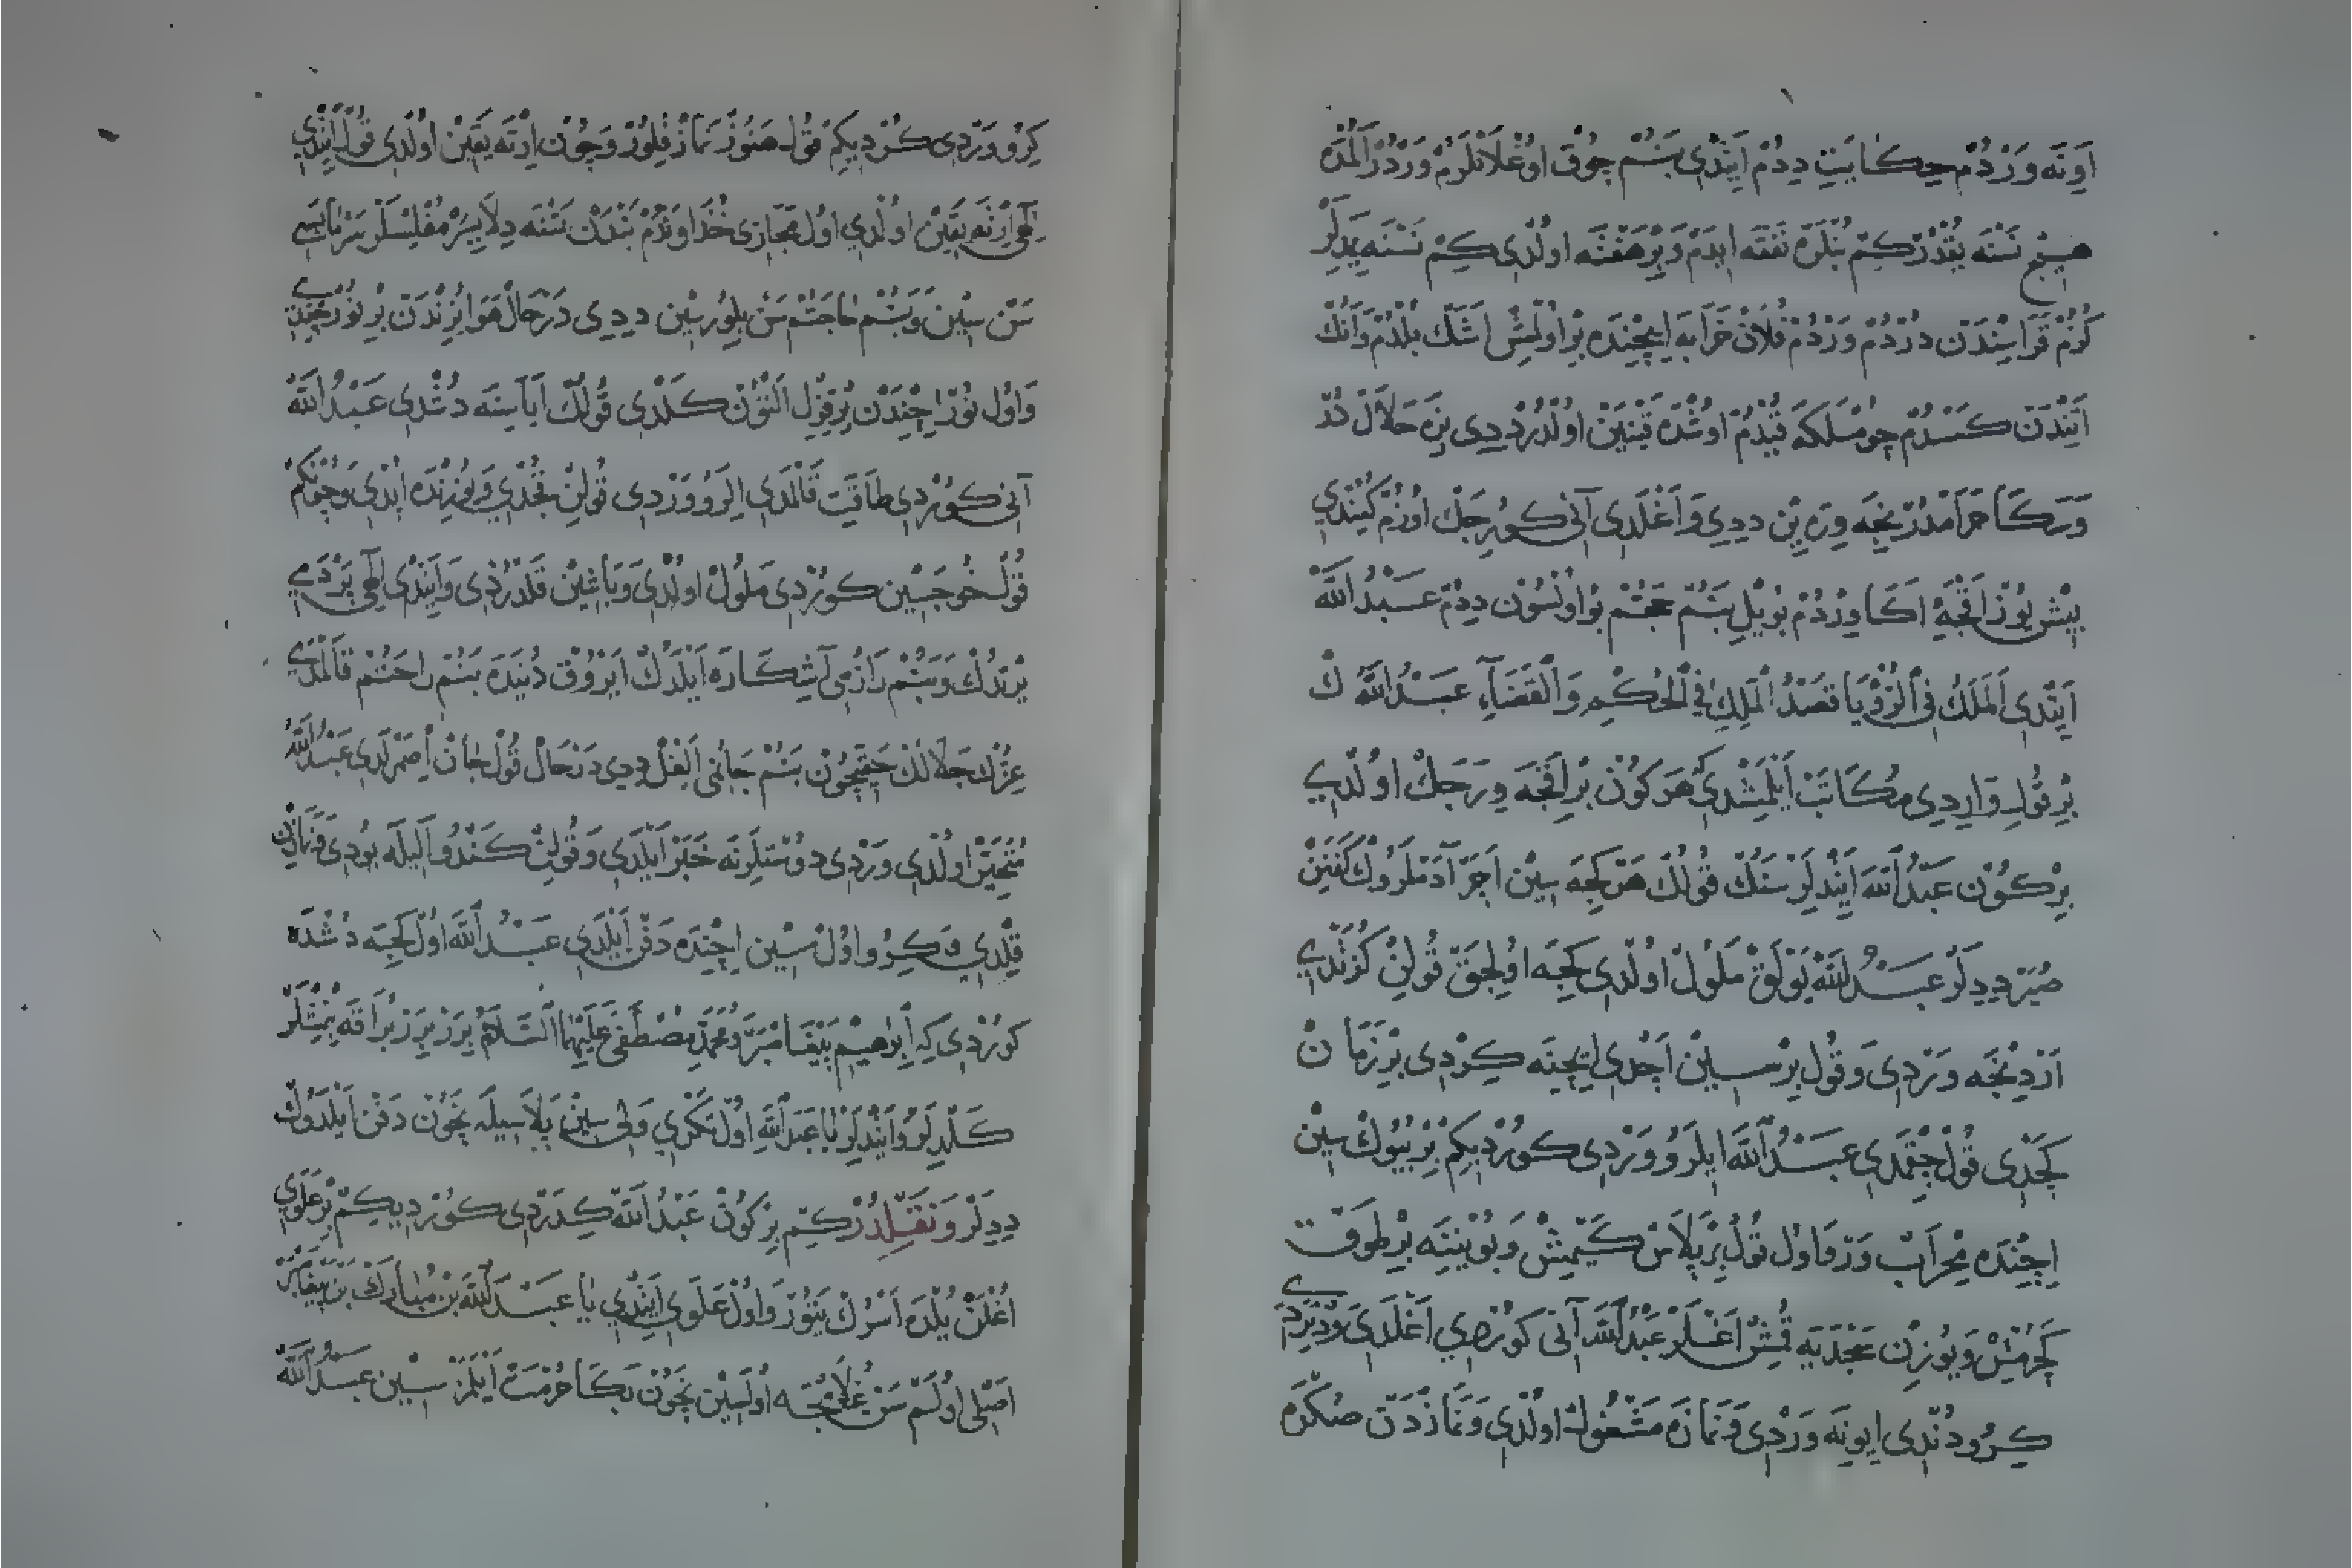 اَوِنَه وَرْدُمْ حِكَايَتِ دِدُمْ اَيِتْدِى بَنُمْ چُوقْ اوُغْلَانْلَرُمْ وَرْدُرْ اَلُمْدَه
هيچ نَسْنَه يُقْدُرْ كِمْ بُنْلَرَه نَفَقَه ايدَمْ وَبِرْ هَفْتَه اولْدِى كِمْ نَسْنَه يِمَدِلَرْ
كُزُمْ قَرَاسِنْدَنْ دُرْدُمْ وَرْدُمْ فُلَانْ خَرَابَه اِيچِنْدَه بِرْ اوُلْمِشْ اَشَكْ بُلْدُمْ وَاَنُكْ
اَتِنْدَنْ كَسْدُمْ چُومْلَكَه قُيْدُمْ اوُشْدَه قَيْنَيَنْ اولْدُرْ دِدِى بِزَه حَلَالْ دُرْ
وَسَكَا حَرَامْدُرْ نِچَه وِرَه يِنْ دِدِى وَاَغْلَدِى آنِى كُورِجَكْ اوُزُمْ كُيُنْدِى
بِيشْ يُوزْ اَقْچَه اَكَا وِرْدُمْ بُو يِلْ بَنُمْ حَجُّمْ بُو اوُلْسُونْ دِدُمْ عَبْدُ اللّٰهْ
اَيِتْدِى اَلْمَلَكُ فِى الرُّؤْيَا قَصَدَ الْمَلِكَ فِى الْحُكْمِ وَالْقَضَاءِ عَبْدُ اللّٰهْ كْ
بِرْ قُولِ وَارِدِى مُكَاتَبْ اَيْلَمِشْدِى كِه هَرْ كُونْ بِرْ اَقْچَه وِرَجَكْ اوُلْدِى
بِرْ كُونْ عَبْدُ اللّٰهَ اَيِتْدِلَرْ سَنُكْ قُولُكْ هَرْ كِجَه سِينْ اَچَرْ آدَمْلَرُوكْ كَفَنِنْ
صُيَرْ دِدِلَرْ عَبْدُ اللّٰهْ يَوْلَقْ مَلُولْ اوُلْدِى كِجَه اوُلِجَقْ قُولِنْ كُزَتْدِى
اَرْدِنْجَه وَرْدِى وَقُولْ بِرْ سِينْ اَچْدِى اِيچِنَه كِرْدِى بِرْ زَمَانْ
كَچْدِى قُولْ چِقْمَدِى عَبْدُ اللّٰهْ اِيلَرُو وَرْدِى كُورْدِيكِمْ بِرْ بُيُوكْ سِينْ
اِچِنْدَه مِحْرَابْ وَرْ وَاوُلْ قُولْ بِرْ پَلَاسْ كَيْمِشْ وَبُويْنِنَه بِرْ طَوْقْ
كَچُرْمِشْ وَيُوزِنْ سَجْدَيَه قُمِشْ اَغْلَرْ عَبْدُ اللّٰهْ آنِى كُورْدِى اَغْلَدِى وَدِتْرَدِى
كِرُو دُنْدِى ايوِنَه وَرْدِى وَنَمَازَه مَشْغُولْ اوُلْدِى وَنَمَازْدَنْ صُكْرَه
كِرُو وَرْدِى كُرْدِيكِمْ قُولْ هَنُوزْ نَمَازْ قِلُورْ وَچُونْ اِرْتَه يَقِينْ اولْدِى قُولْ اَيِتْدِى
الٰهِى اِرْتَه يَقِينْ اوُلْدِى اوُلْ مَجَازِى خُذَاوَنْدُمْ بَنْدَنْ نَسْنَه دِلَايِسَرْ مُفْلِسْلَرْ سَرْمَايَسِى
سَنْ سِينْ وَبَنُمْ حَاجَتُمْ سَنْ بِلُورْسِينْ دِدِى دَرْحَالْ هَوَا يُزِنْدَنْ بِرْ نُورْ چِقْدِى
وَاوُلْ نُورْ اِچِنْدَنْ بِرْ قِزِلْ اَلْتُونْ كَلْدِى قُولُكْ اَيَاسِنَه دُشْدِى عَبْدُ اللّٰهْ
آنِى كُورْدِى طَاقَتِ قَالْمَدِى اِلَرُو وَرْدِى قُولِنْ قُچْدِى وَيُوزِنْدَه اُپْدِى وَچُونْكِمْ
قُولْ خُوجَسِينْ كُورْدِى مَلُولْ اوُلْدِى وَبَاشِينْ قَلْدُرْدِى وَاَيِتْدِى الٰهِى پَرْدَمِى
يِرْتْدُكْ وَبَنُمْ رَازُمِى آشِكَارَه اَيْلَدُكْ اَيْرُوقْ دُنْيَدَه بَنُمْ رَاحَتُمْ قَالْمَدِى
عِزُّكْ جَلَالُكْ حَقِّچُونْ بَنُمْ جَانُمِى اَلْغِلْ دِدِى دَرْحَالْ قُولْ جَانْ اِصْمَرْلَدِى عَبْدُ اللّٰهْ
مُتَحَيِّرْ اوُلْدِى وَرْدِى دُوسْتْلَرِنَه خَبَرْ اَيْلَدِى وَقُولِنْ كَنْدُو اَلِيلَه يُودِى وَنَمَازِنْ
قِلْدِى وَكِرُو اوُلْ سِينْ اِچِنْدَه دَفْنْ اَيْلَدِى عَبْدُ اللّٰهْ اوُلْ كِجَه دُشْدَه
كُورْدِى كِه اِبْرٰهِيمْ پَيْغَامْبَرْ وَمُحَمَّدِ مُصْطَفٰى عَلَيْهِمَا السَّلَامْ بِرَرْ بِرَرْ بُرَاقَه بِنْمِشْلَرْ
كَلْدِلَرْ وَاَيِتْدِلَرْ يَا عَبْدَ اللّٰهْ اوُلْ تَكْرِى وَلِى سِينْ پَلَاسِيلَه نِچُونْ دَفْنْ اَيْلَدُوكْ
دِدِلَرْ وَنَقْلِدُرْ كِمْ بِرْ كُونْ عَبْدُ اللّٰهْ كِدَرْدِى كُورْدِيكِمْ بِرْ عَلَوِى
اُغْلَنْ يُلْدَه اَسْرُكْ يَتُورْ وَاوُلْ عَلَوِى اَيِتْدِى يَا عَبْدَ اللّٰهْ بْنْ مُبَارَكْ بَنْ پَيْغَامْبَرْ
اَصْلِى اوُلَمْ سَنْ اوُلَسِينْ نِچُونْ بَكَا حُرْمَتْ اَيْلَمَزْ سِينْ عَبْدُ اللّٰهْ